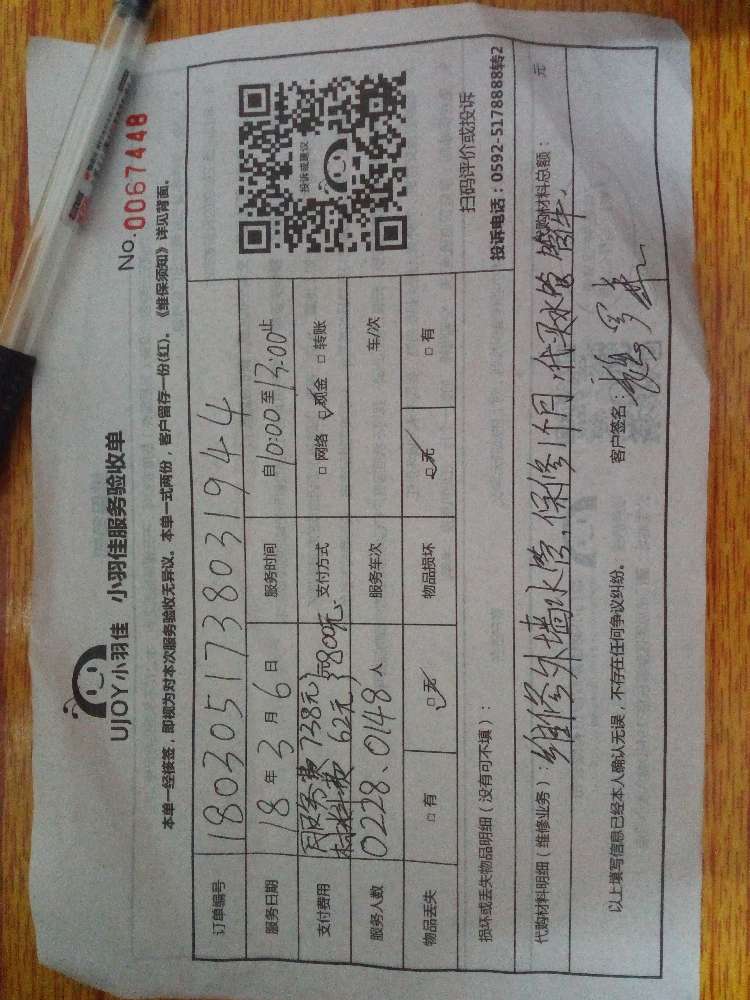 UJOY小羽佳 小羽佳服务验收单
No.0067448
本单一经核签，即视为对本次服务验收无异议。本单一式两份，客户留存一份(红)。《维保须知》详见背面。
订单编号 1803051738031944
服务日期 18年3月6日 服务时间 自10:00至13:00止
支付费用 服务费738元 材料费62元 800元 元 支付方式 □网络 ☑现金 □转账
服务人数 0228、0148人 服务车次 车/次
物品丢失 □有 ☑无 物品损坏 ☑无 □有
投诉或建议
扫码评价或投诉
投诉电话：0592-5178888转2
损坏或丢失物品明细（没有可不填）：
代购材料明细（维修业务）：维修外墙水管，保修1个月，代买水管 代购材料总额： 元
以上填写信息已经本人确认无误，不存在任何争议纠纷。 客户签名：